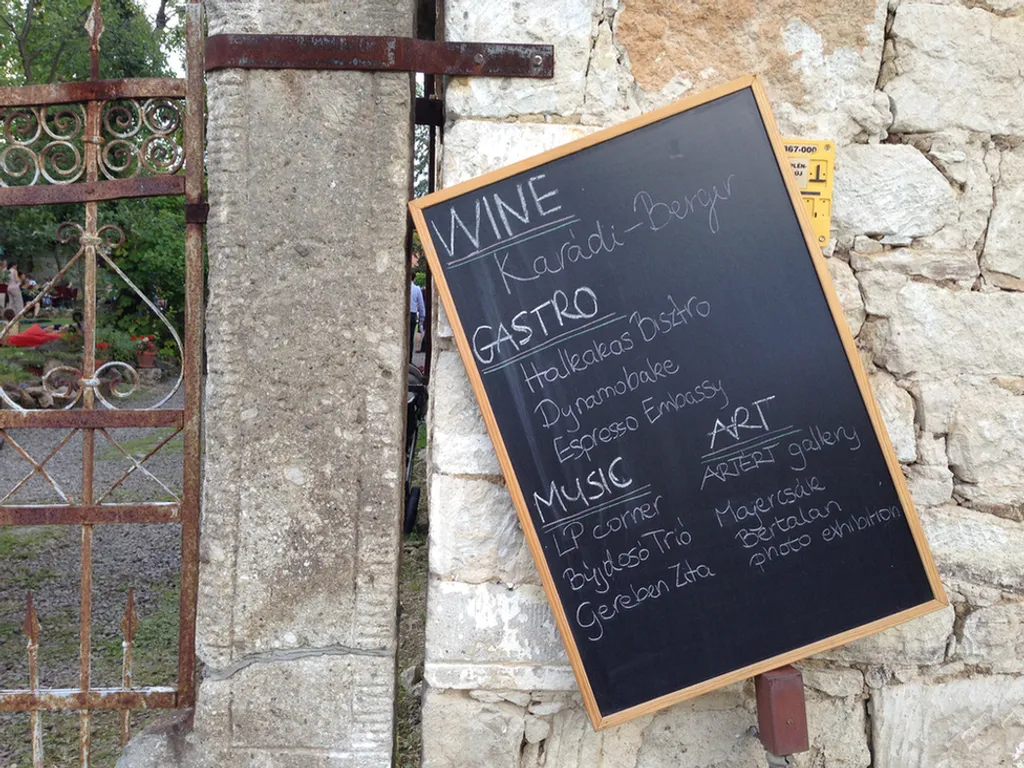 WINE
Karádi-Berger
GASTRO
Halkakas Bisztro
Dynamobake
Espresso Embassy
MUSIC
LP corner
Bujdosó Trió
Gereben Zita
ART
ARTÉRT gallery
Majercsák
Bertalan
photo exhibition
67-000